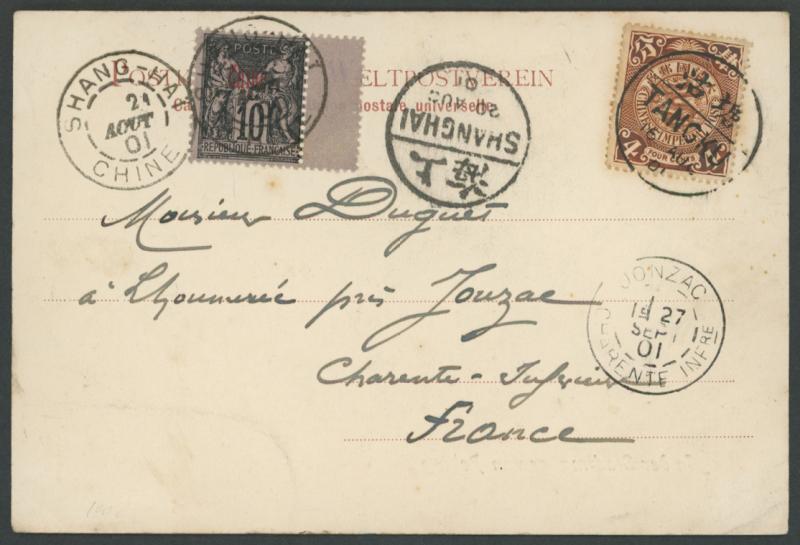 SHANG-HAI
21
AOUT
01
CHINE
POSTE
Chine
10
REPUBLIQUE FRANÇAISE
WELTPOSTVEREIN
postale universelle
20 AUG 01
SHANGHAI
上海
FOUR CENTS
Monsieur Duguet
à Lhoumerée près Jonzac
Charente-Inférieure
France
JONZAC
27
SEPT
01
CHARENTE INFRE